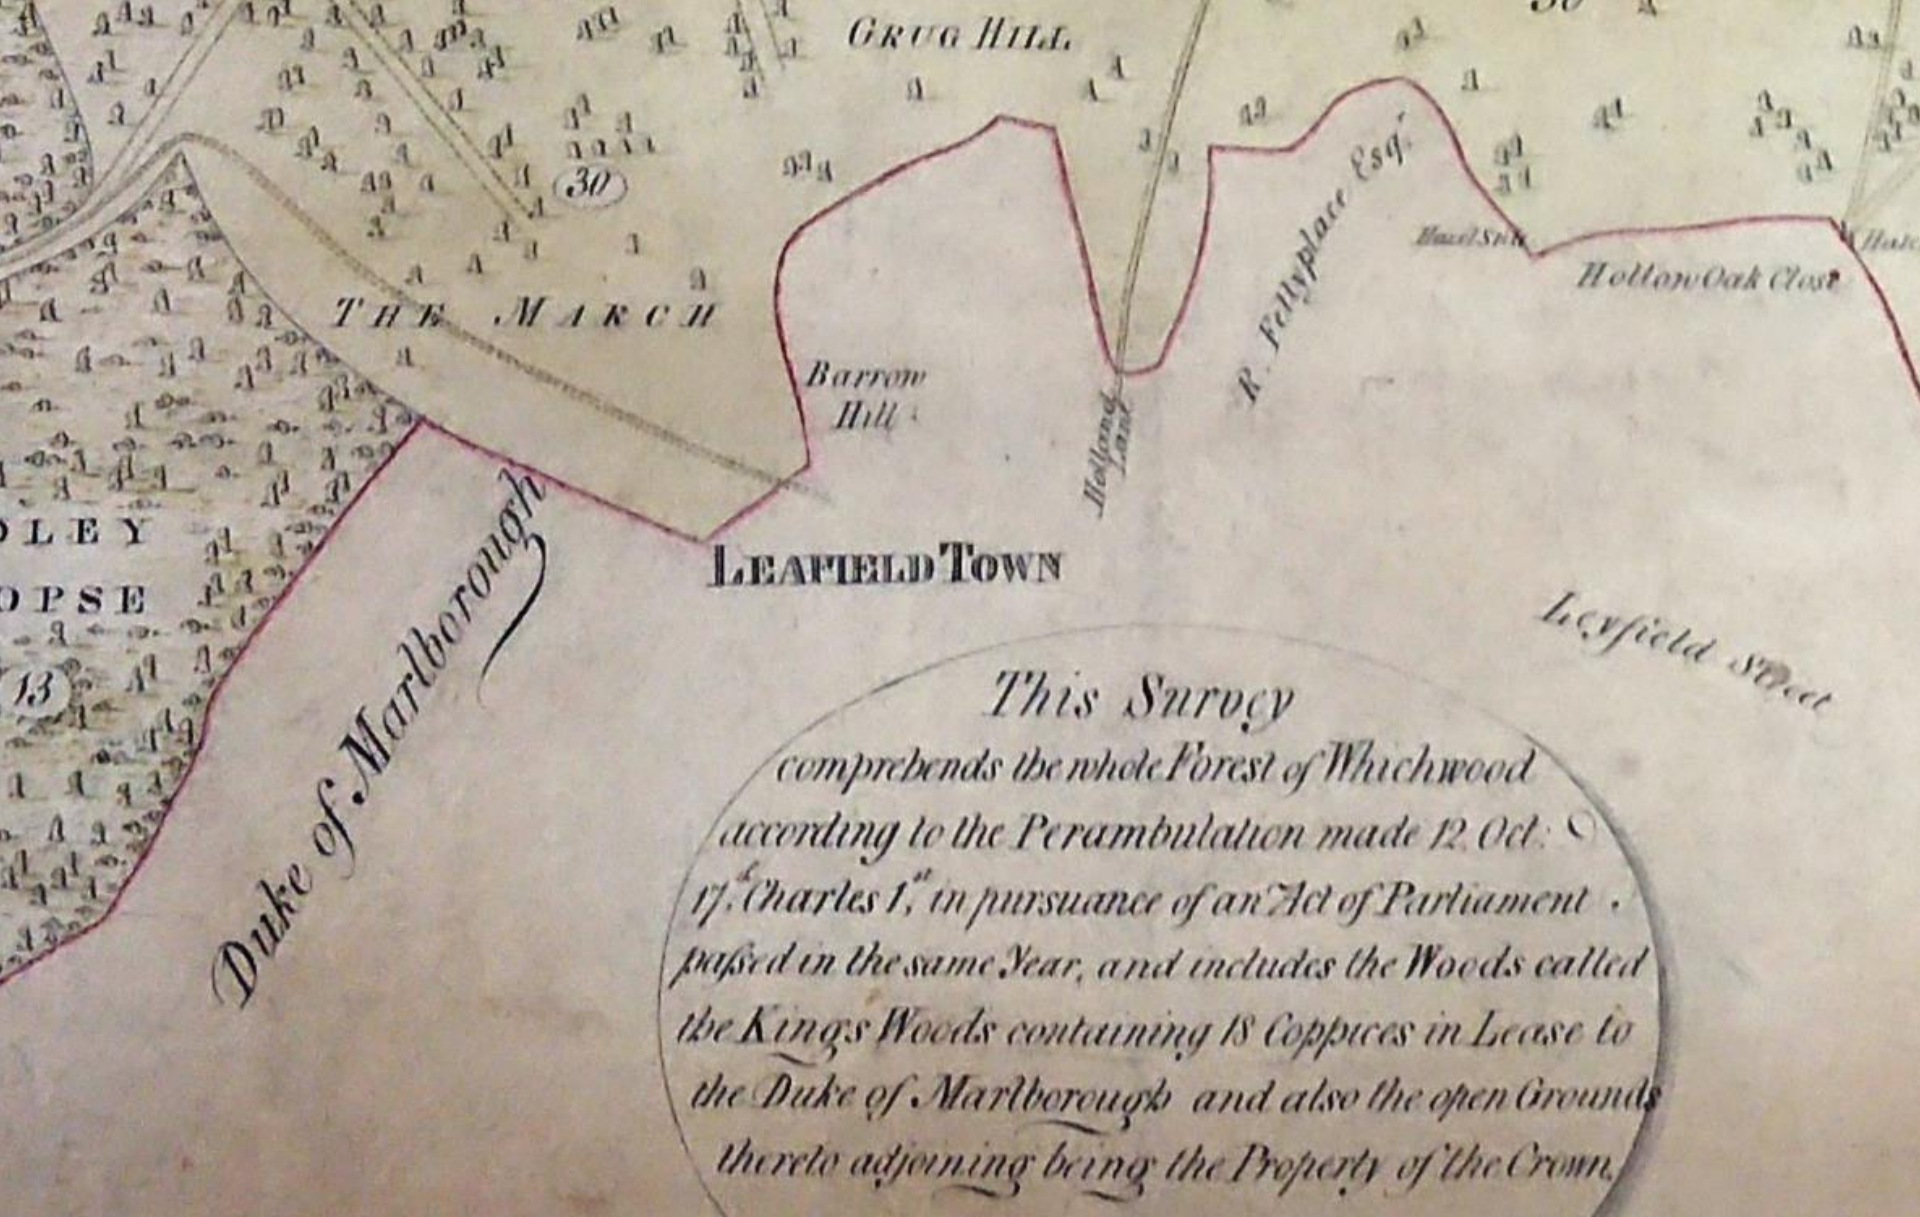 GRUG HILL
30
THE MARCH
Barrow
Hill
Holland
Lane
R. Fettyplace Esqr.
Hazel Stub
Hollow Oak Close
LEY
OPSE
13
Duke of Marlborough
LEAFIELD TOWN
Leyfield Street
This Survey
comprehends the whole Forest of Whichwood
according to the Perambulation made 12. Oct:
17th. Charles 1st, in pursuance of an Act of Parliament
paſsed in the same Year, and includes the Woods called
the Kings Woods containing 18 Coppices in Lease to
the Duke of Marlborough and also the open Grounds
thereto adjoining being the Property of the Crown.